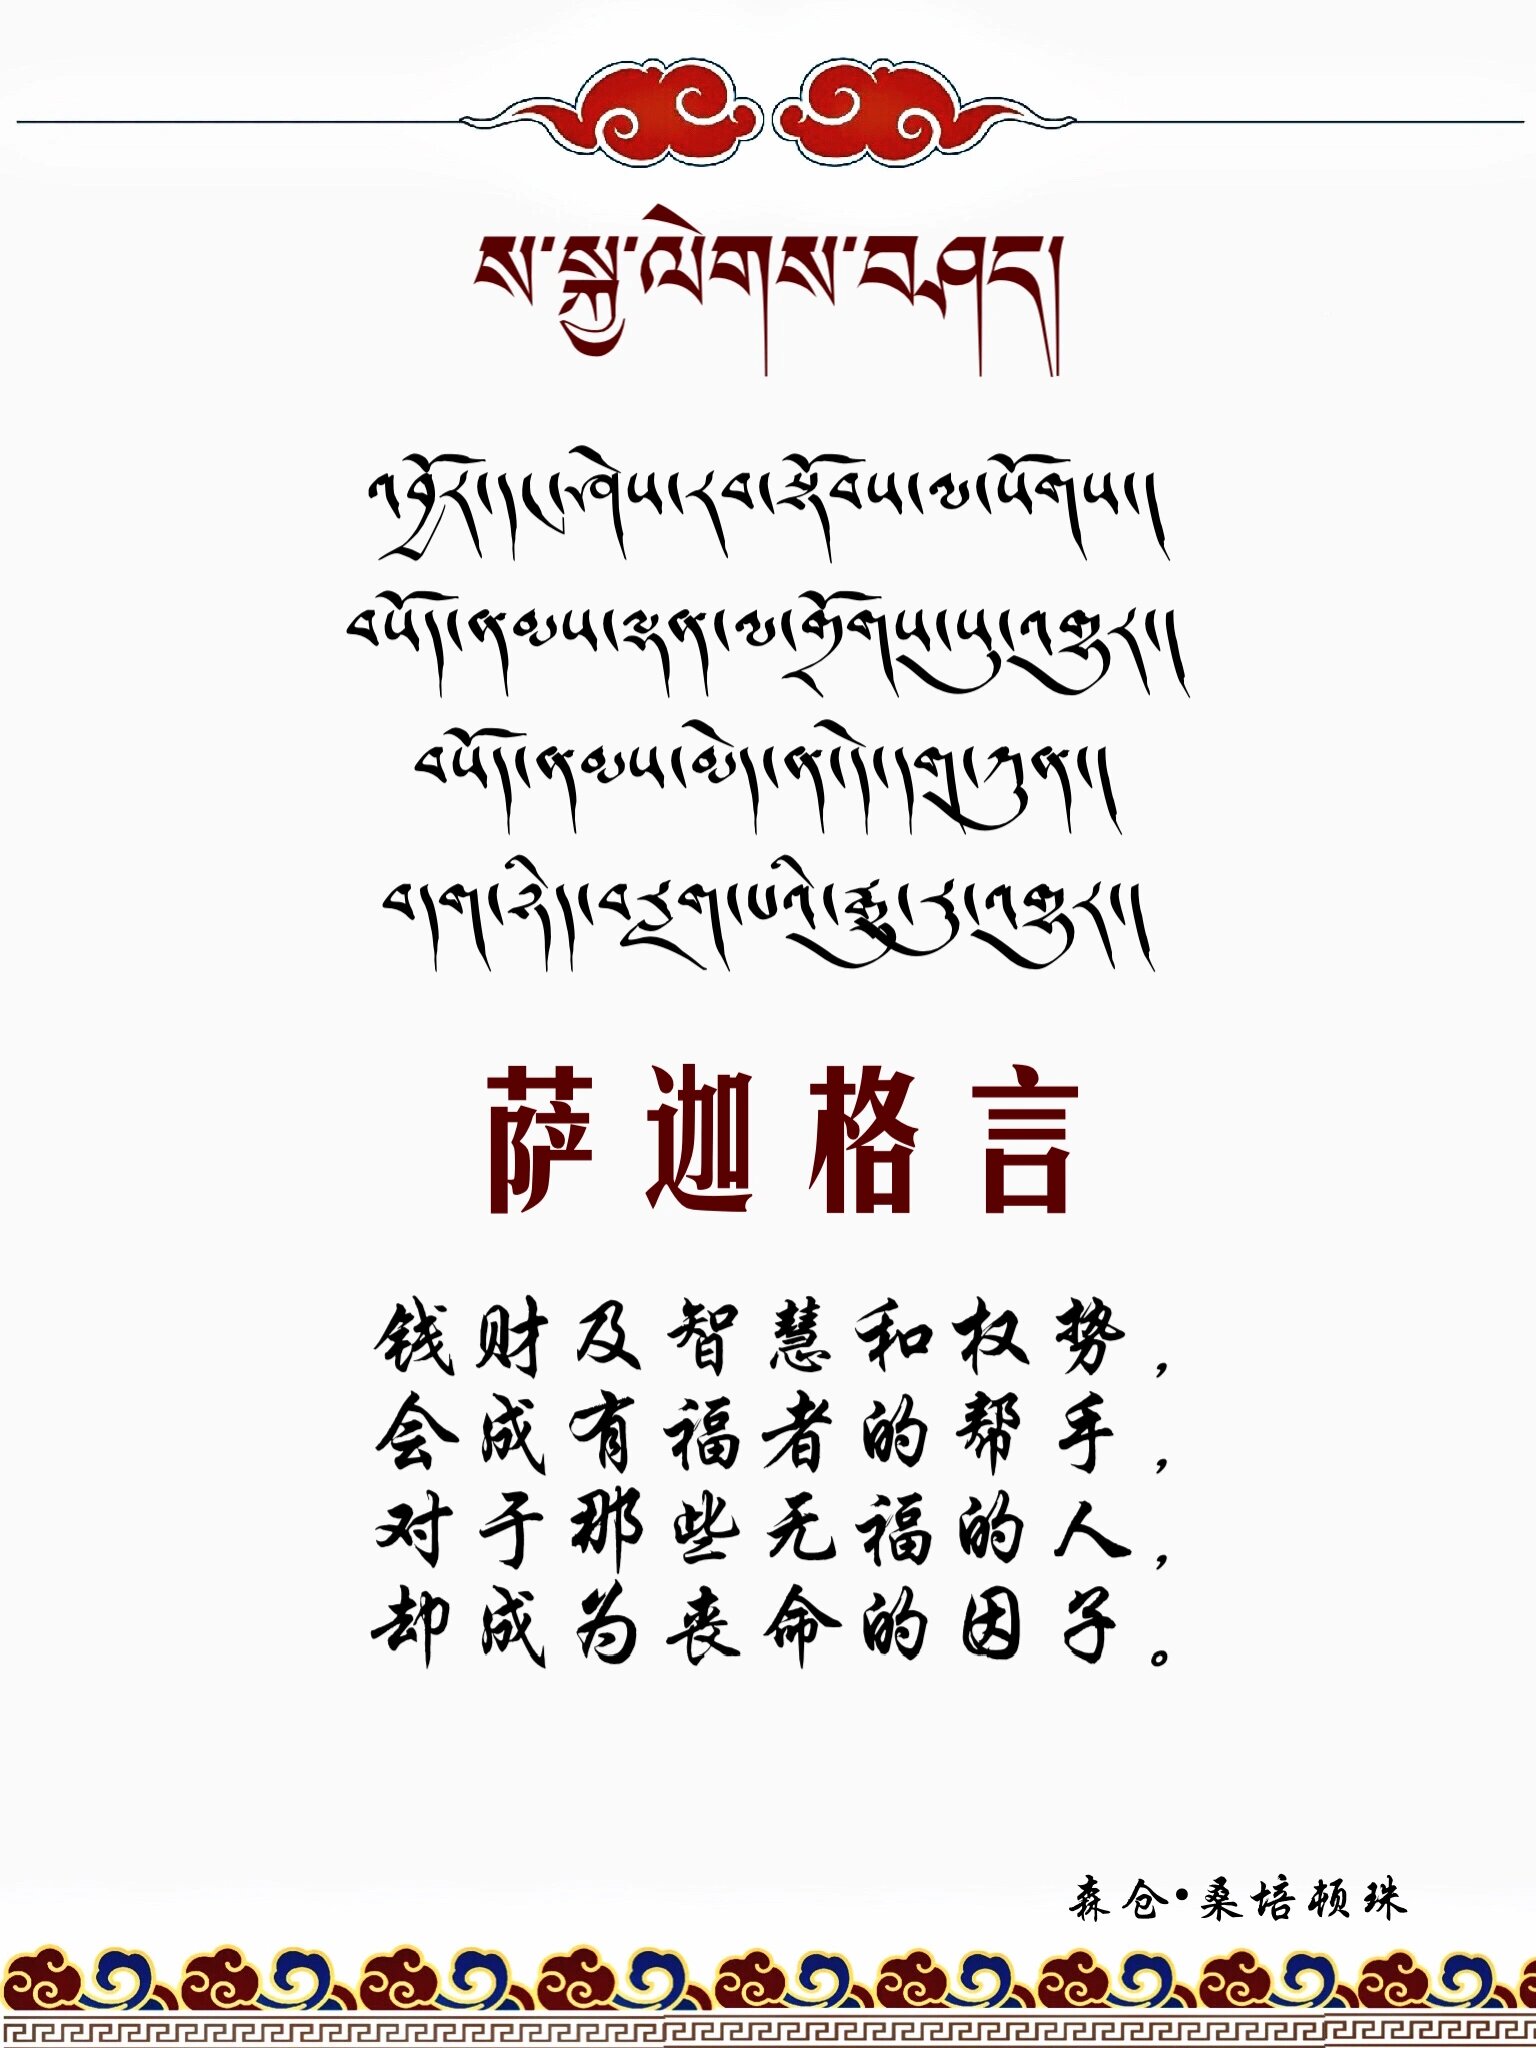 ས་སྐྱ་ལེགས་བཤད།
འབྱོར་དང་ཤེས་རབ་སྟོབས་ལ་སོགས།།
བསོད་ནམས་ལྡན་ལ་གྲོགས་སུ་འགྱུར།།
བསོད་ནམས་མེད་ན་དེ་དག་ཀུན།།
བདག་ཉིད་བརླག་པའི་རྒྱུ་རུ་འགྱུར།།
萨迦格言
钱财及智慧和权势，
会成有福者的帮手，
对于那些无福的人，
却成为丧命的因子。
森仓•桑培顿珠